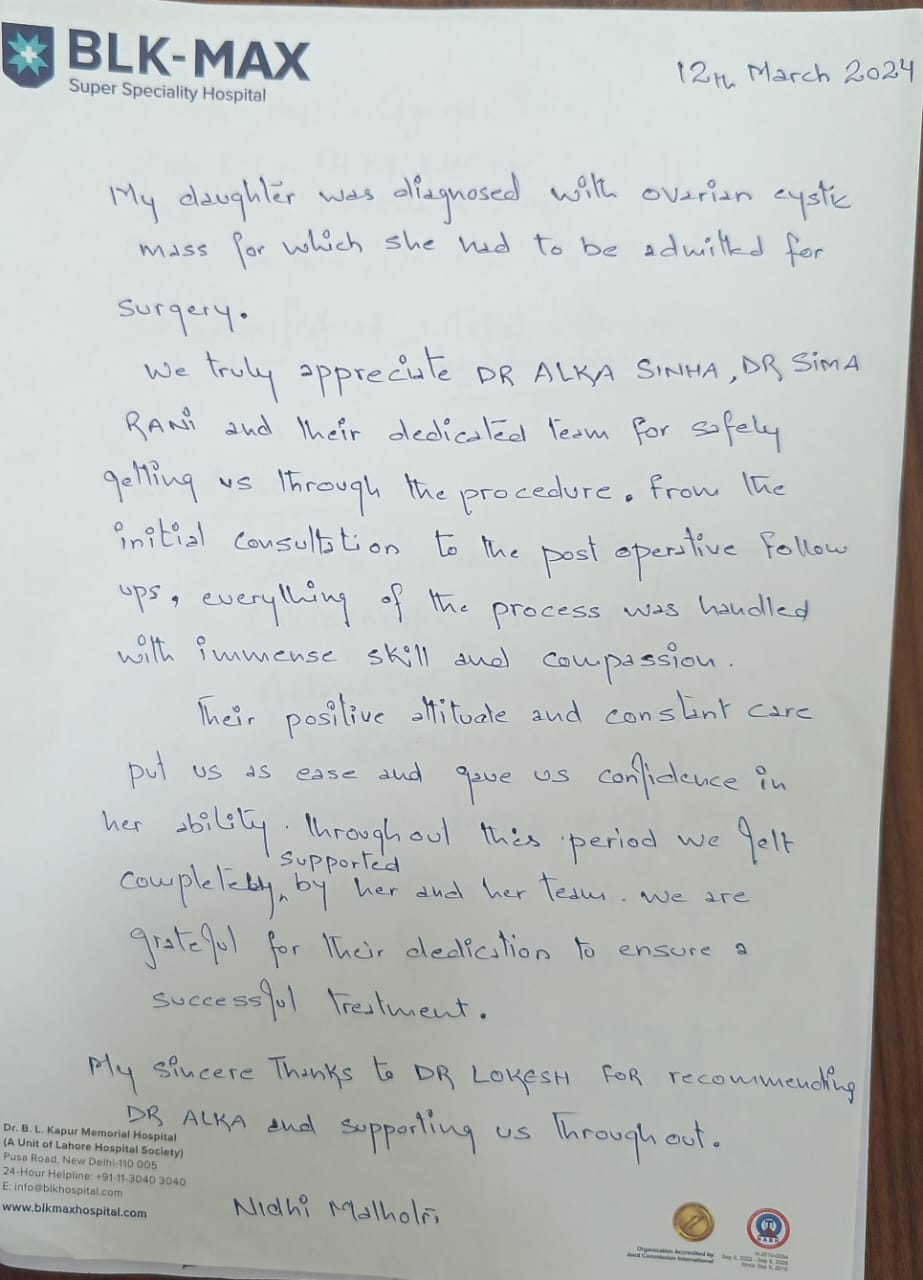 BLK-MAX
Super Speciality Hospital
12th March 2024
My daughter was diagnosed with ovarian cystic
mass for which she had to be admitted for
surgery.
We truly appreciate DR ALKA SINHA, DR SIMA
RANI and their dedicated team for safely
getting us through the procedure. From the
initial consultation to the post operative follow
ups, everything of the process was handled
with immense skill and compassion.
Their positive attitude and constant care
put us as ease and gave us confidence in
her ability. Throughout this period we felt
supported
completely by her and her team. We are
grateful for their dedication to ensure a
successful treatment.
My sincere Thanks to DR LOKESH FOR recommending
DR ALKA and supporting us throughout.
Nidhi Malhotri
Dr. B. L. Kapur Memorial Hospital
(A Unit of Lahore Hospital Society)
Pusa Road, New Delhi-110 005
24-Hour Helpline: +91-11-3040 3040
E: info@blkhospital.com
www.blkmaxhospital.com
Organization Accredited by
Joint Commission International
NABH
H-2010-0054
Sep 6, 2022 - Sep 8, 2026
Since Sep 6, 2010